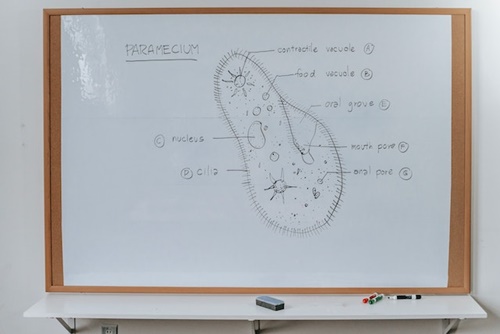 PARAMECIUM
contractile vacuole A
food vacuole B
oral grove E
C nucleus
mouth pore F
D cilia
anal pore G